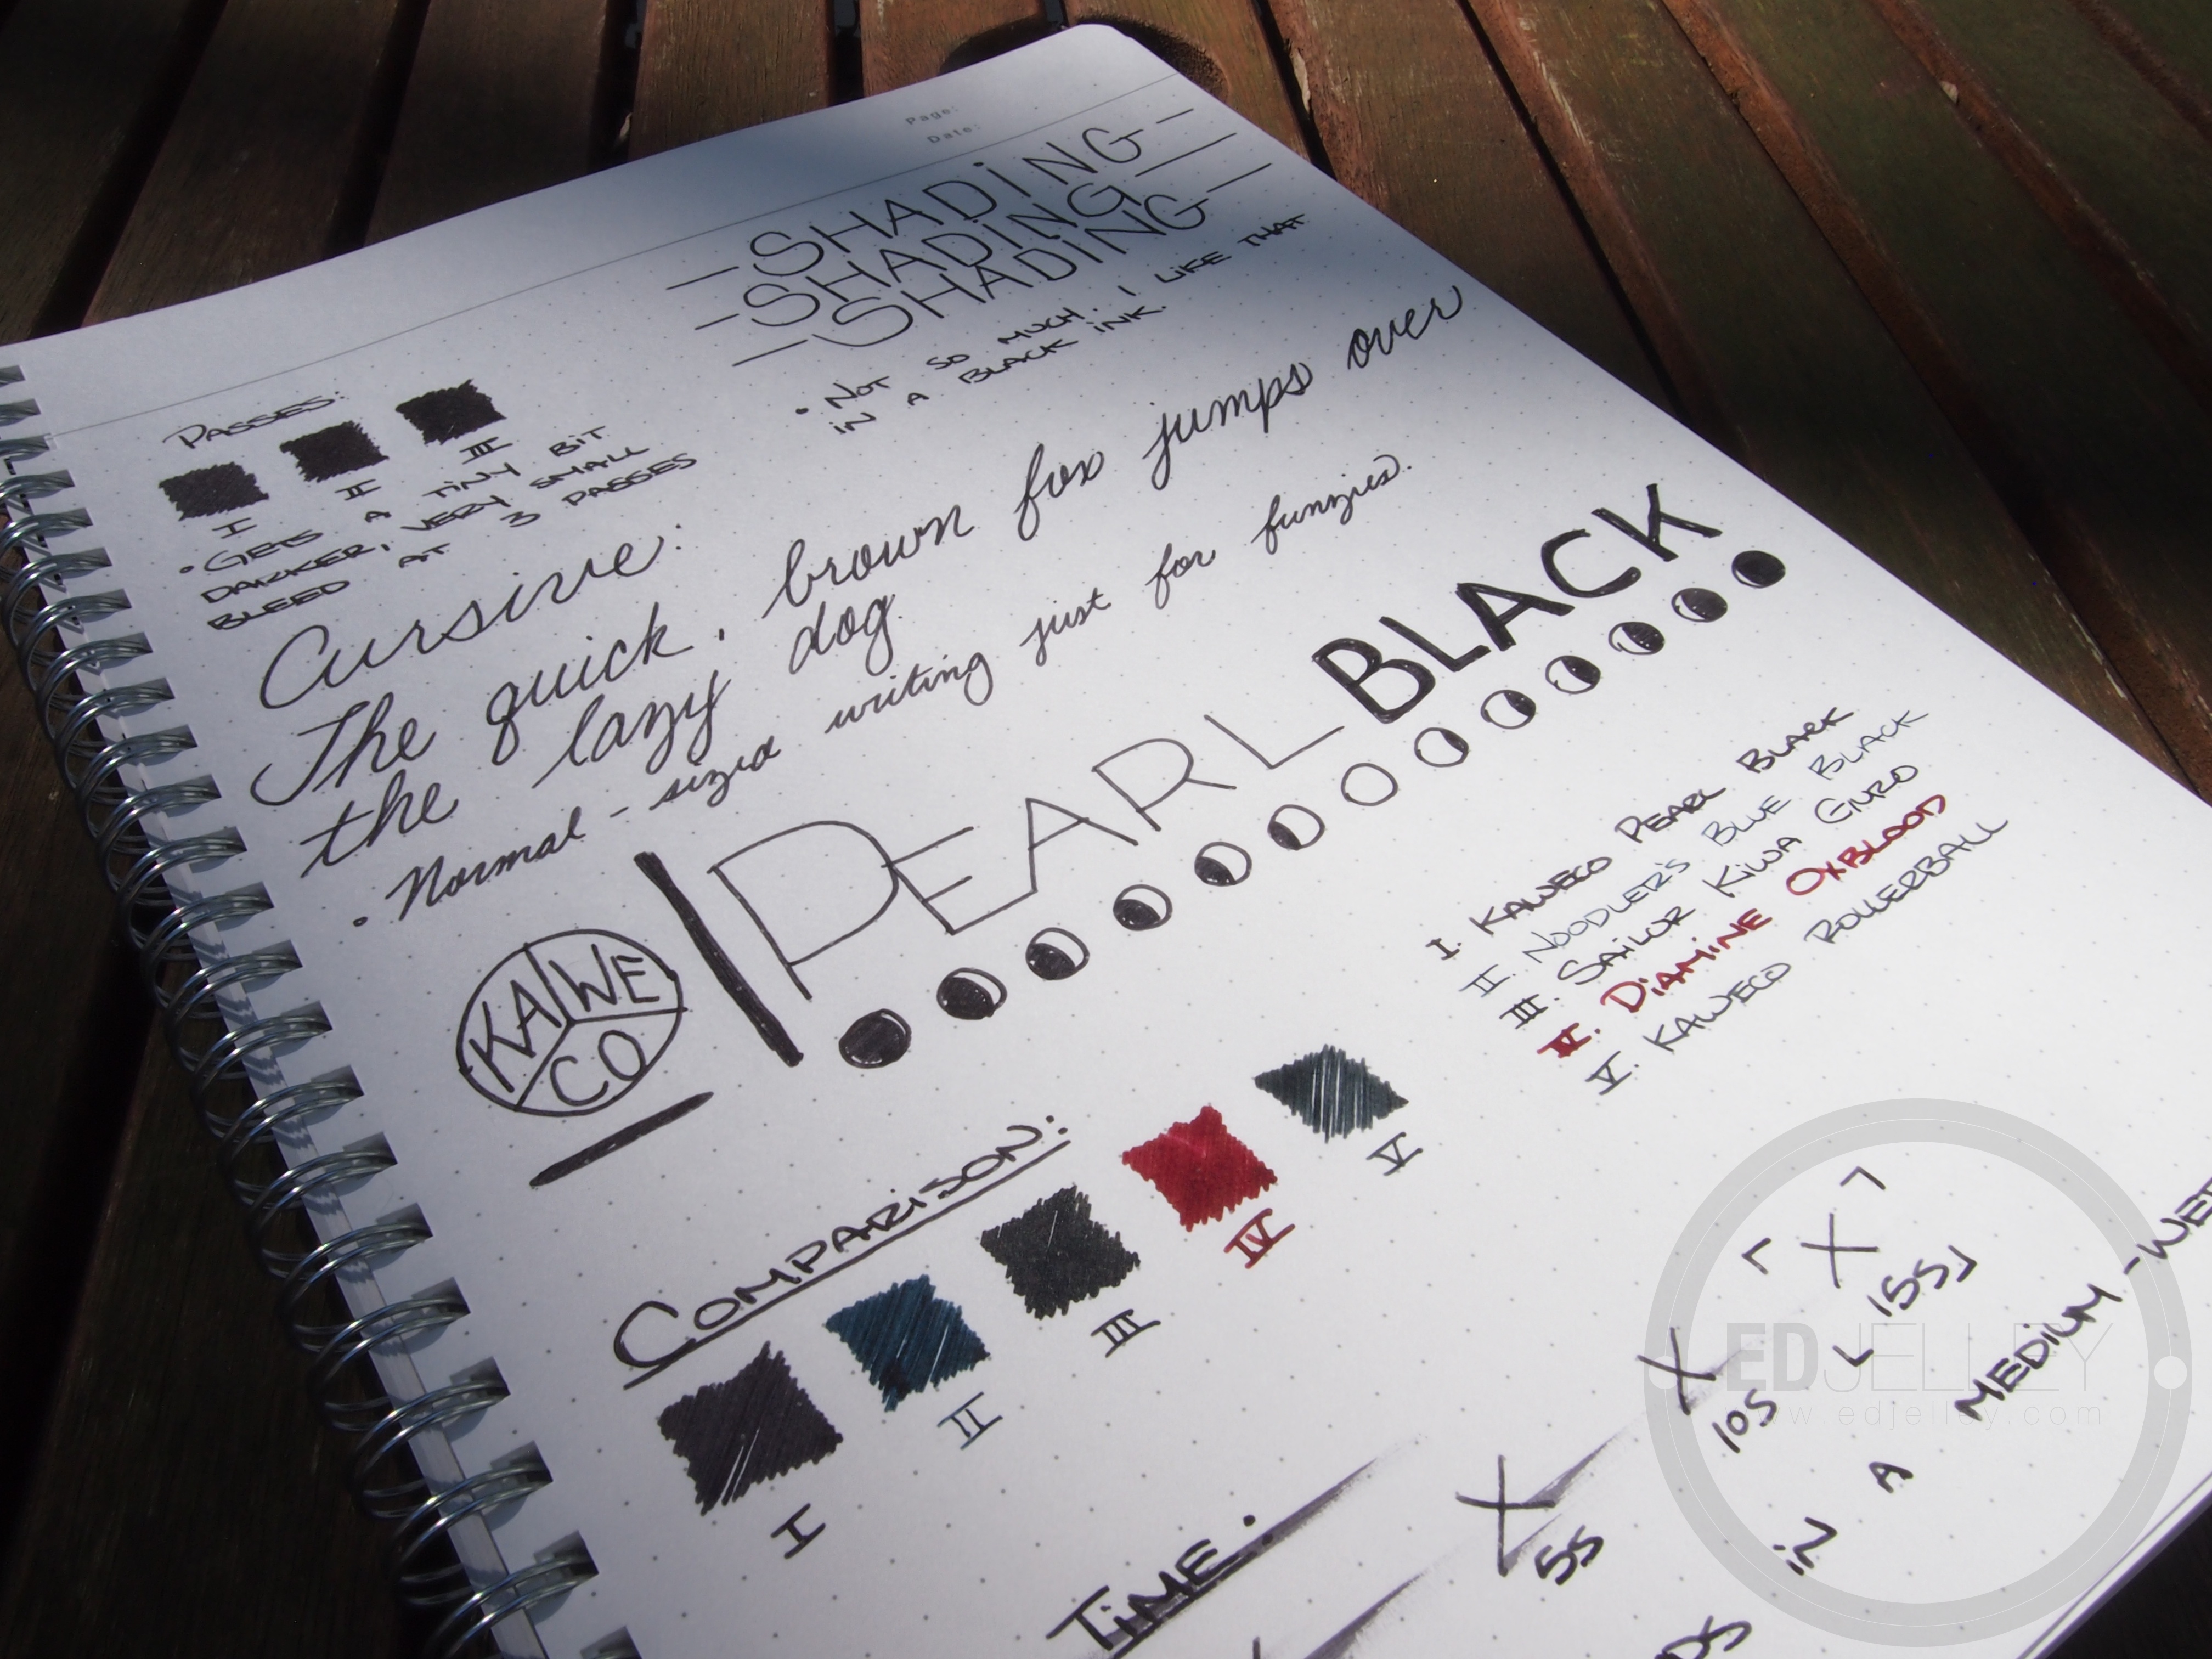 Page:
Date:
-SHADiNG-
-SHADiNG-
-SHADiNG-
• NOT SO MUCH. I LIKE THAT
iN A BLACK iNK.
PASSES:
I II III
• GETS A TiNY BiT
DARKER, VERY SMALL
BLEED AT 3 PASSES
Cursive:
The quick, brown fox jumps over
the lazy dog
• Normal-sized writing just for funzies.
KAWE
CO
PEARL BLACK
I. KAWECO PEARL BLACK
II. NOODLER'S BLUE BLACK
III. SAiLOR KIWA GURO
IV. DiAMiNE OXBLOOD
V. KAWECO ROLLERBALL
COMPARiSON:
I II III IV V
TiME:
X X X
5S 10S 15S
iN A MEDiUM-WET
EDJELLEY
www.edjelley.com